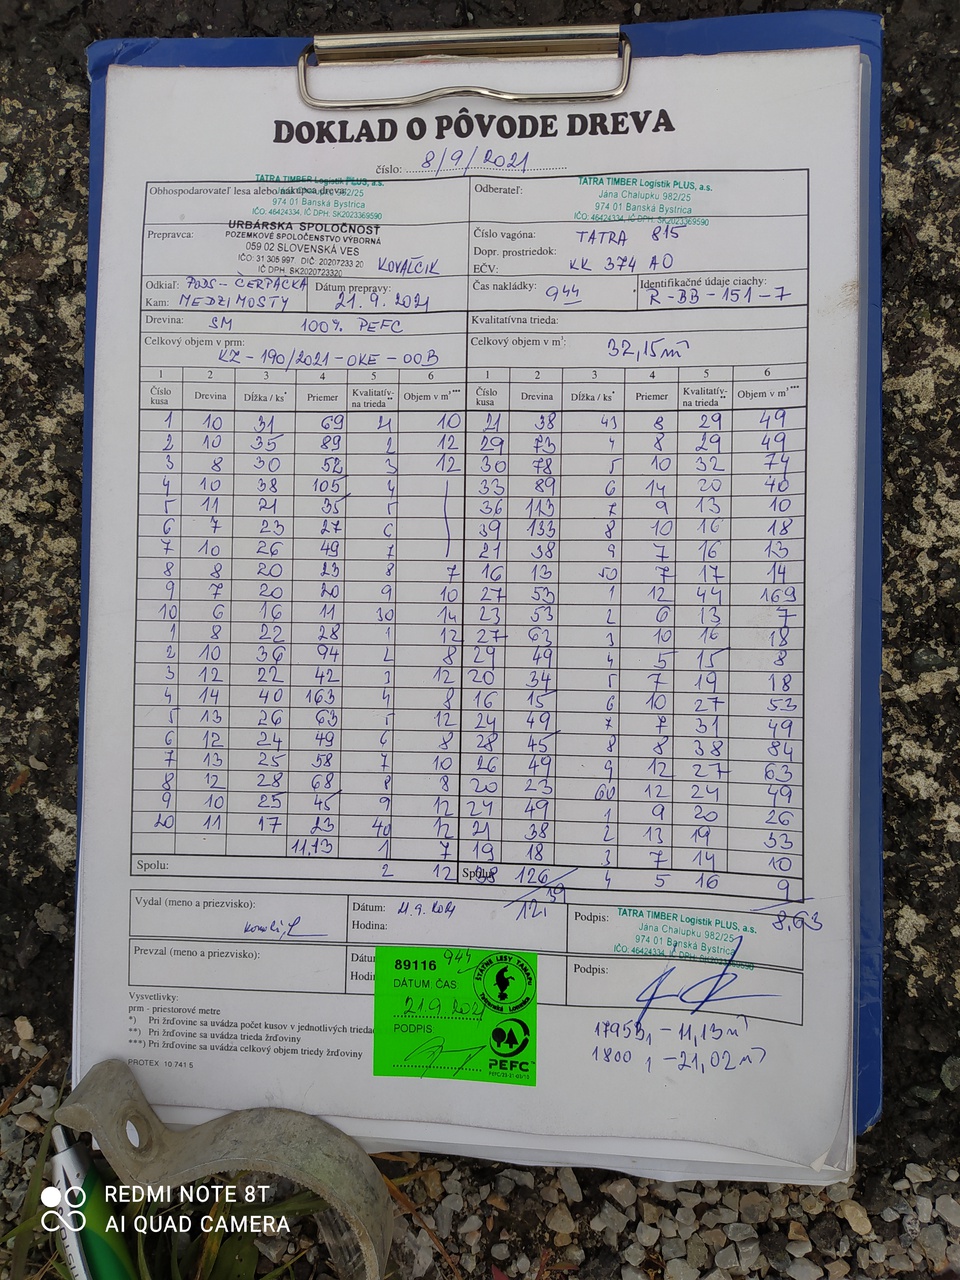 DOKLAD O PÔVODE DREVA
číslo: 8/9/2021
Obhospodarovateľ lesa alebo nákupca dreva:
TATRA TIMBER Logistik PLUS, a.s.
Jána Chalupku 982/25
974 01 Banská Bystrica
IČO: 46424334, IČ DPH: SK2023369590
Odberateľ:
TATRA TIMBER Logistik PLUS, a.s.
Jána Chalupku 982/25
974 01 Banská Bystrica
IČO: 46424334, IČ DPH: SK2023369590
Prepravca:
URBÁRSKA SPOLOČNOSŤ
POZEMKOVÉ SPOLOČENSTVO VÝBORNÁ
059 02 SLOVENSKÁ VES
IČO: 31 305 997 DIČ: 20207233 20
IČ DPH: SK2020723320
KOVALČIK
Číslo vagóna: TATRA 815
Dopr. prostriedok:
EČV: KK 374 AO
Odkiaľ: PODS-ČERPAČKA
Kam: MEDZIMOSTY
Dátum prepravy:
21.9.2021
Čas nakládky:
944
Identifikačné údaje ciachy:
R-BB-151-7
Drevina: SM 100% PEFC
Kvalitatívna trieda:
Celkový objem v prm:
KZ-190/2021-OKE-00B
Celkový objem v m³:
32,15m³
1 2 3 4 5 6 1 2 3 4 5 6
Číslo kusa Drevina Dĺžka / ks* Priemer Kvalitatív- na trieda** Objem v m³*** Číslo kusa Drevina Dĺžka / ks* Priemer Kvalitatív- na trieda** Objem v m³***
1 10 31 69 21 10 21 38 43 8 29 49
2 10 35 89 2 12 29 73 4 8 29 49
3 8 30 52 3 12 30 78 5 10 32 74
4 10 38 105 4 33 89 6 14 20 40
5 11 21 35 5 36 113 7 9 13 10
6 7 23 27 6 39 133 8 10 16 18
7 10 26 49 7 21 38 9 7 16 13
8 8 20 23 8 7 16 13 50 7 17 14
9 7 20 20 9 10 27 53 1 12 44 169
10 6 16 11 30 14 23 53 2 6 13 7
1 8 22 28 1 12 27 63 3 10 16 18
2 10 36 94 2 8 29 49 4 5 15 8
3 12 22 42 3 12 20 34 5 7 19 18
4 14 40 163 4 8 16 15 6 10 27 53
5 13 26 63 5 12 24 49 7 7 31 49
6 12 24 49 6 8 28 45 8 8 38 84
7 13 25 58 7 10 26 49 9 12 27 63
8 12 28 68 8 8 20 23 60 12 24 49
9 10 25 45 9 12 24 49 1 9 20 26
20 11 17 23 40 12 21 38 2 13 19 33
11,13 1 7 19 18 3 7 14 10
Spolu: 2 12 Spolu: 38 126 4 5 16 9
8,63
Vydal (meno a priezvisko):
Dátum: 21.9.2021
Hodina:
Podpis:
TATRA TIMBER Logistik PLUS, a.s.
Jána Chalupku 982/25
974 01 Banská Bystrica
IČO: 46424334, IČ DPH: SK2023369590
Prevzal (meno a priezvisko):
Podpis:
89116 944
DÁTUM, ČAS
21.9.2021
PODPIS:
ŠTÁTNE LESY TANAPU
Tatranská Lomnica
PEFC
Vysvetlivky:
prm - priestorové metre
*) Pri žrďovine sa uvádza počet kusov v jednotlivých trieda
**) Pri žrďovine sa uvádza trieda žrďoviny
***) Pri žrďovine sa uvádza celkový objem triedy žrďoviny
PROTEX 10 741 5
17953, - 11,13 m³
1800, - 21,02 m³
REDMI NOTE 8T
AI QUAD CAMERA